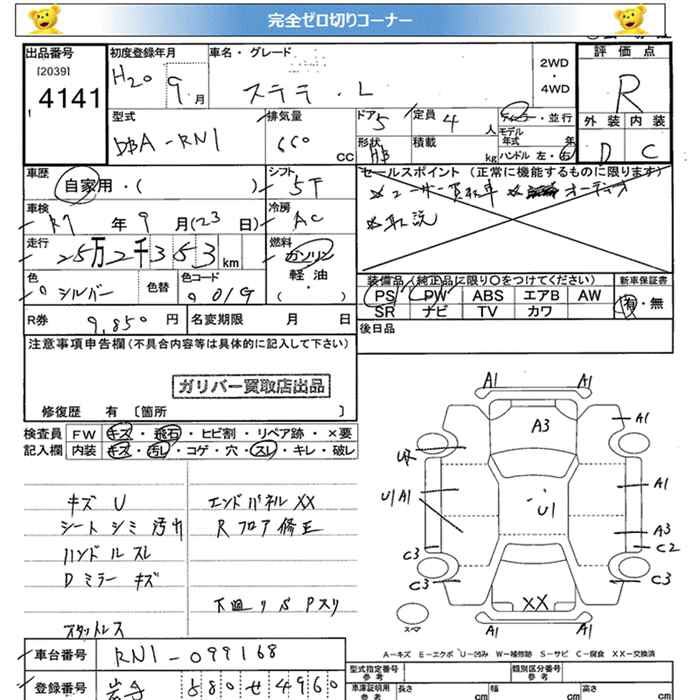 完全ゼロ切りコーナー
出品番号 初度登録年月 車名・グレード 評価点
[2039] 4141 H20 9月 ステラ・L 2WD・4WD R
外装 内装
D C
型式 排気量 ドア 定員 ディーラー・並行
DBA-RN1 660 CC 5 4人 モデル年式 年
形状 積載
HB kg ハンドル 左・右
車歴 シフト セールスポイント (正常に機能するものに限ります)
自家用・( ) 5F ※ユーザー買取車 オーディオ
車検 冷房 ※取説
R7年9月(23日) AC
走行 燃料
25万2千353km ガソリン
軽油
(・)
色 色替 色コード
シルバー 01G
装備品 (純正品に限り〇をつけてください) 新車保証書
PS PW ABS エアB AW 有・無
SR ナビ TV カワ
R券 9,850円 名変期限 月 日 後日品
注意事項申告欄(不具合内容等は具体的に記入して下さい)
ガリバー買取店出品
修復歴 有 〔箇所 〕
検査員 FW キズ・飛石・ヒビ割・リペア跡・×要
記入欄 内装 キズ・汚レ・コゲ・穴・スレ・キレ・破レ
キズ U エンドパネル XX
シート シミ 汚れ Rフロア修正
ハンドル スレ
Dミラー キズ
下廻り S Pスリ
スタットレス
A1 A1
A3 A1
U1 A1 U1 A1
A3
C3 C2
C3 C3
XX
スペア A1 A1
A-キズ E-エクボ U-凹み W-補修跡 S-サビ C-腐食 XX-交換済
車台番号 RN1-099168
登録番号 岩手 580 せ 4960
型式指定番号 参考 類別区分番号 参考
車庫証明用 参考 長さ cm 幅 cm 高さ cm